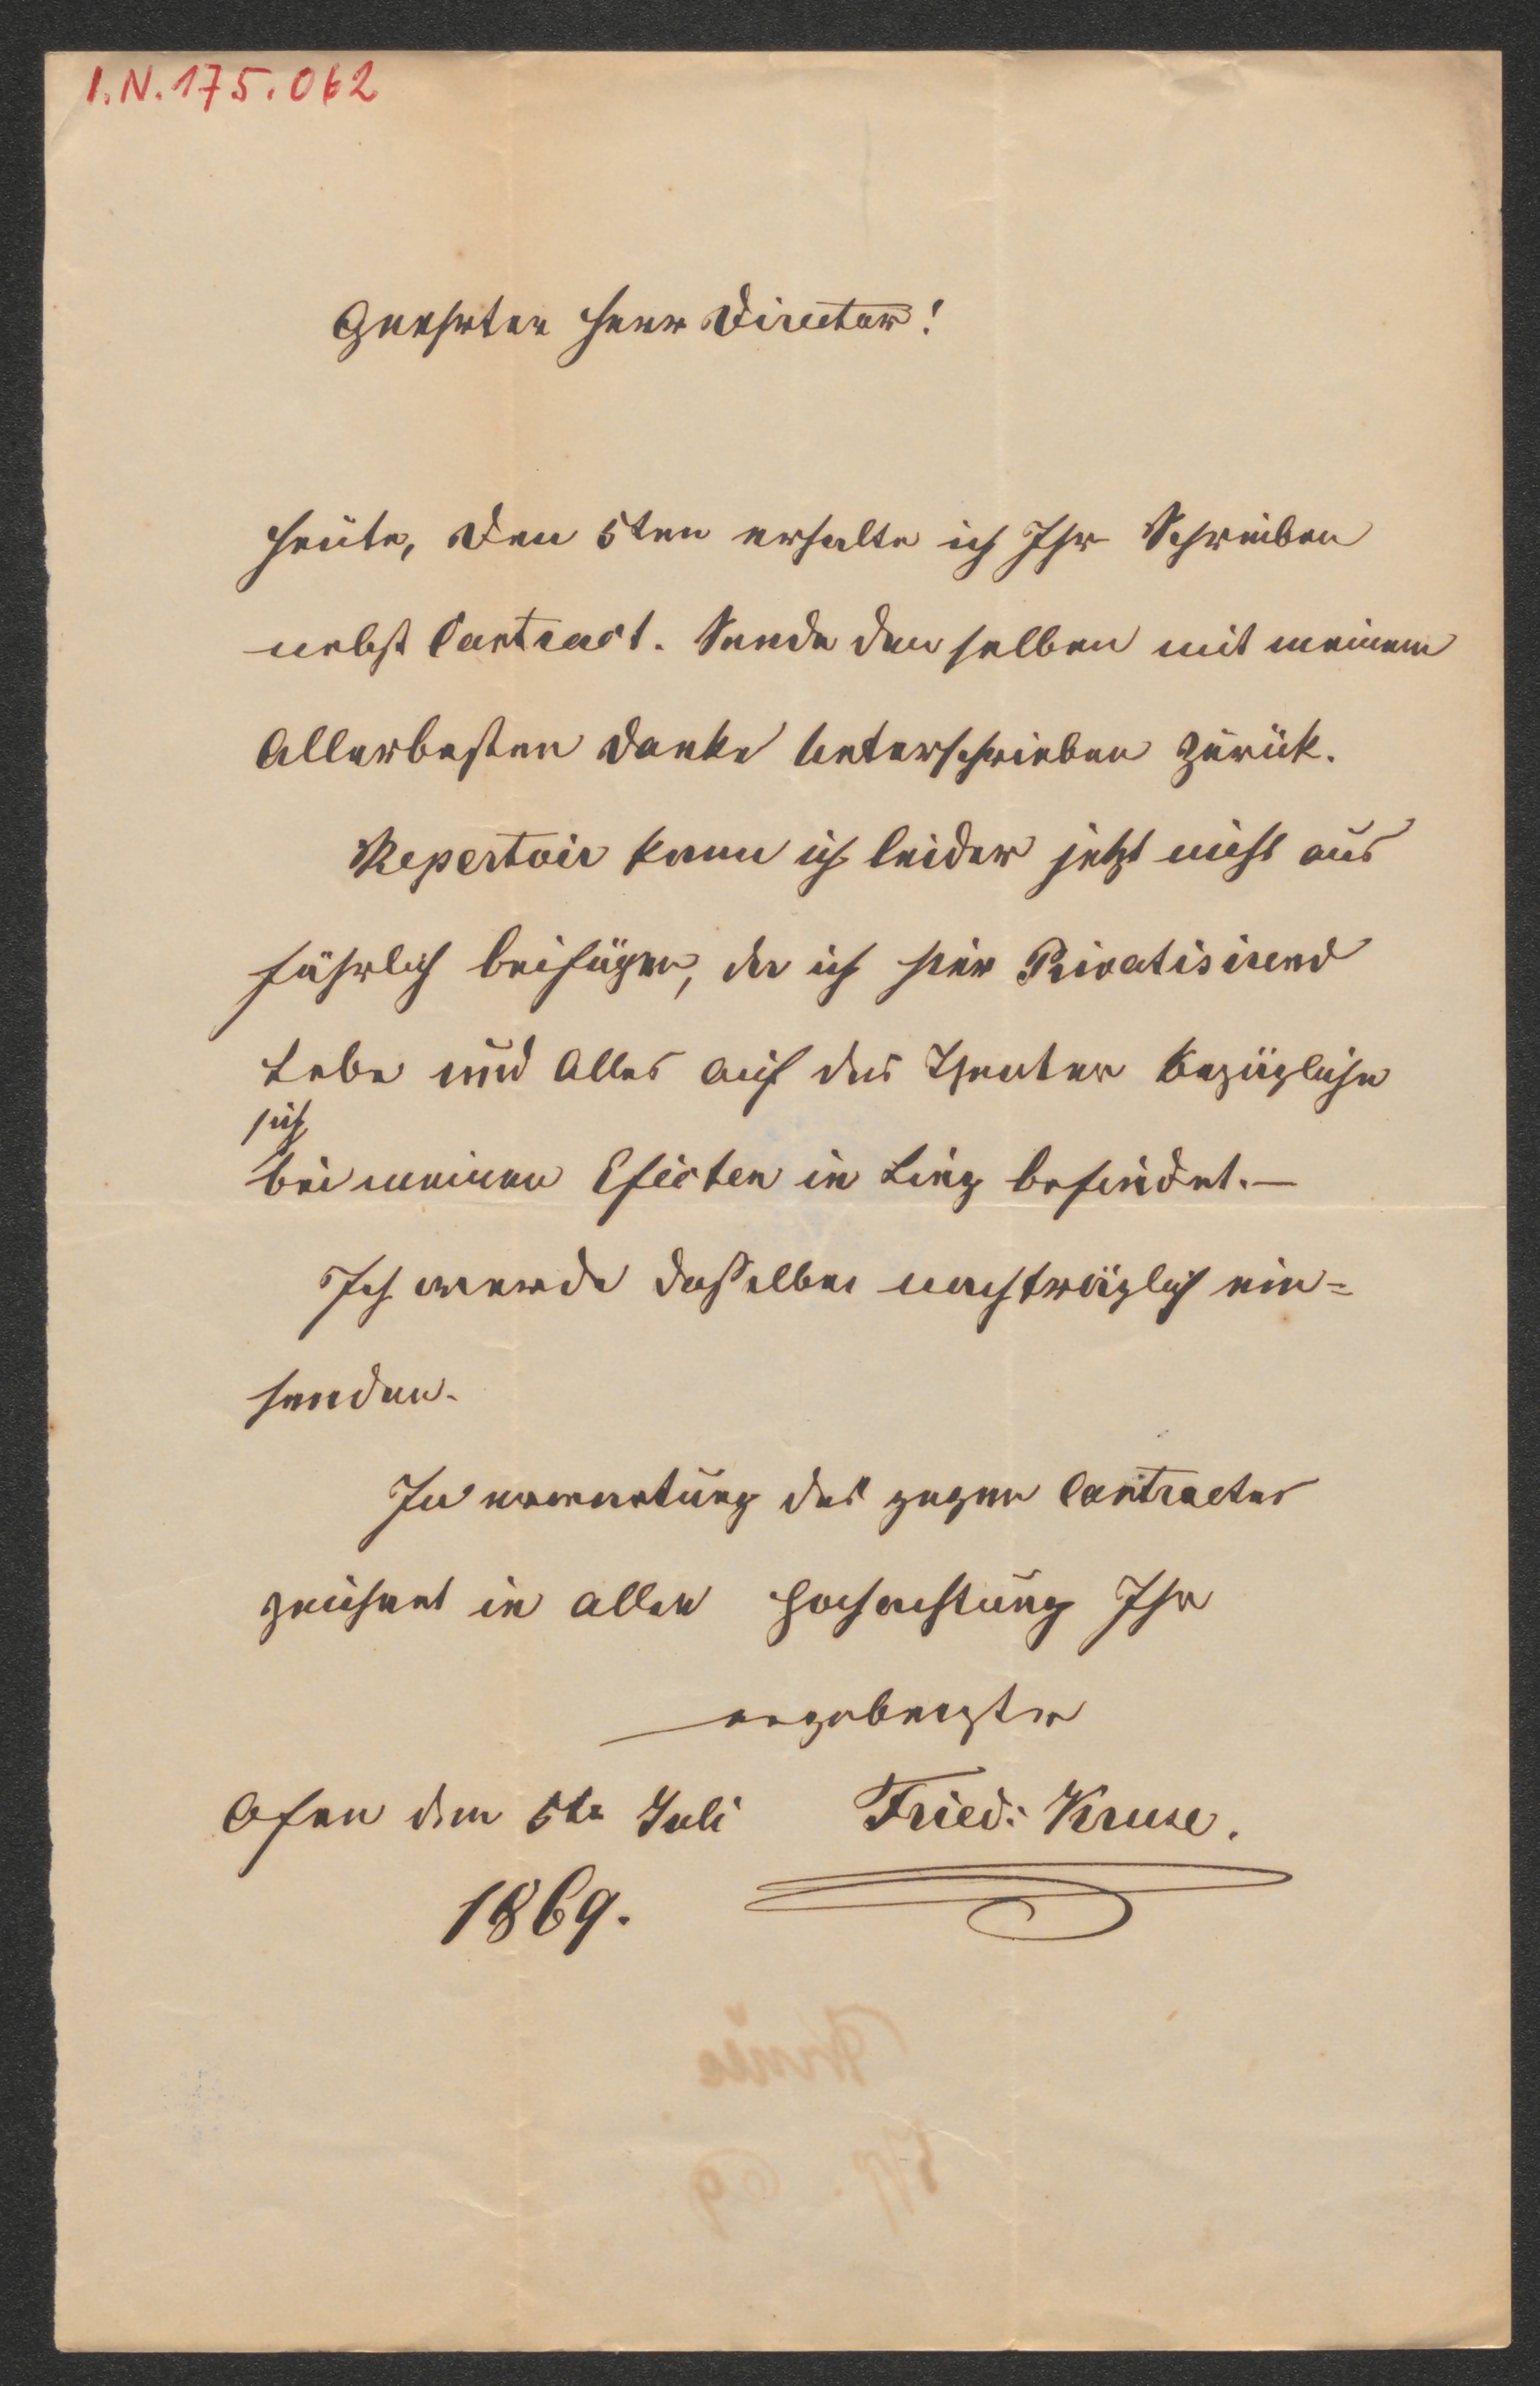 I.N. 175.062
Geehrter Herr Director!
Heute, den 5ten erhalte ich Ihr Schreiben
nebst Contract. Sende den selben mit meinem
Allerbesten Danke Unterschrieben zurük.
Repertoir kann ich leider jetzt nicht aus
führlich beifügen, da ich hier Privatisirend
Lebe und Alles auf das Theater bezügliche
sich
bei meinen Efecten in Linz befindet. —
Ich werde dasselbe nachträglich ein=
senden.
In erwartung des gegen Contractes
zeichnet in aller Hochachtung Ihr
ergebengster
Ofen den 5te Juli Fried: Kruse.
1869.